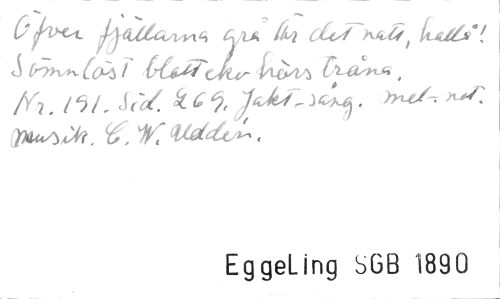 Öfver fjällarna grå är det natt, hallå!
Sömnlöst blott eko hörs tråna.
Nr. 191. Sid. 269. Jakt-sång. mel-not.
musik. C. W. Uddén.
EggeLing SGB 1890